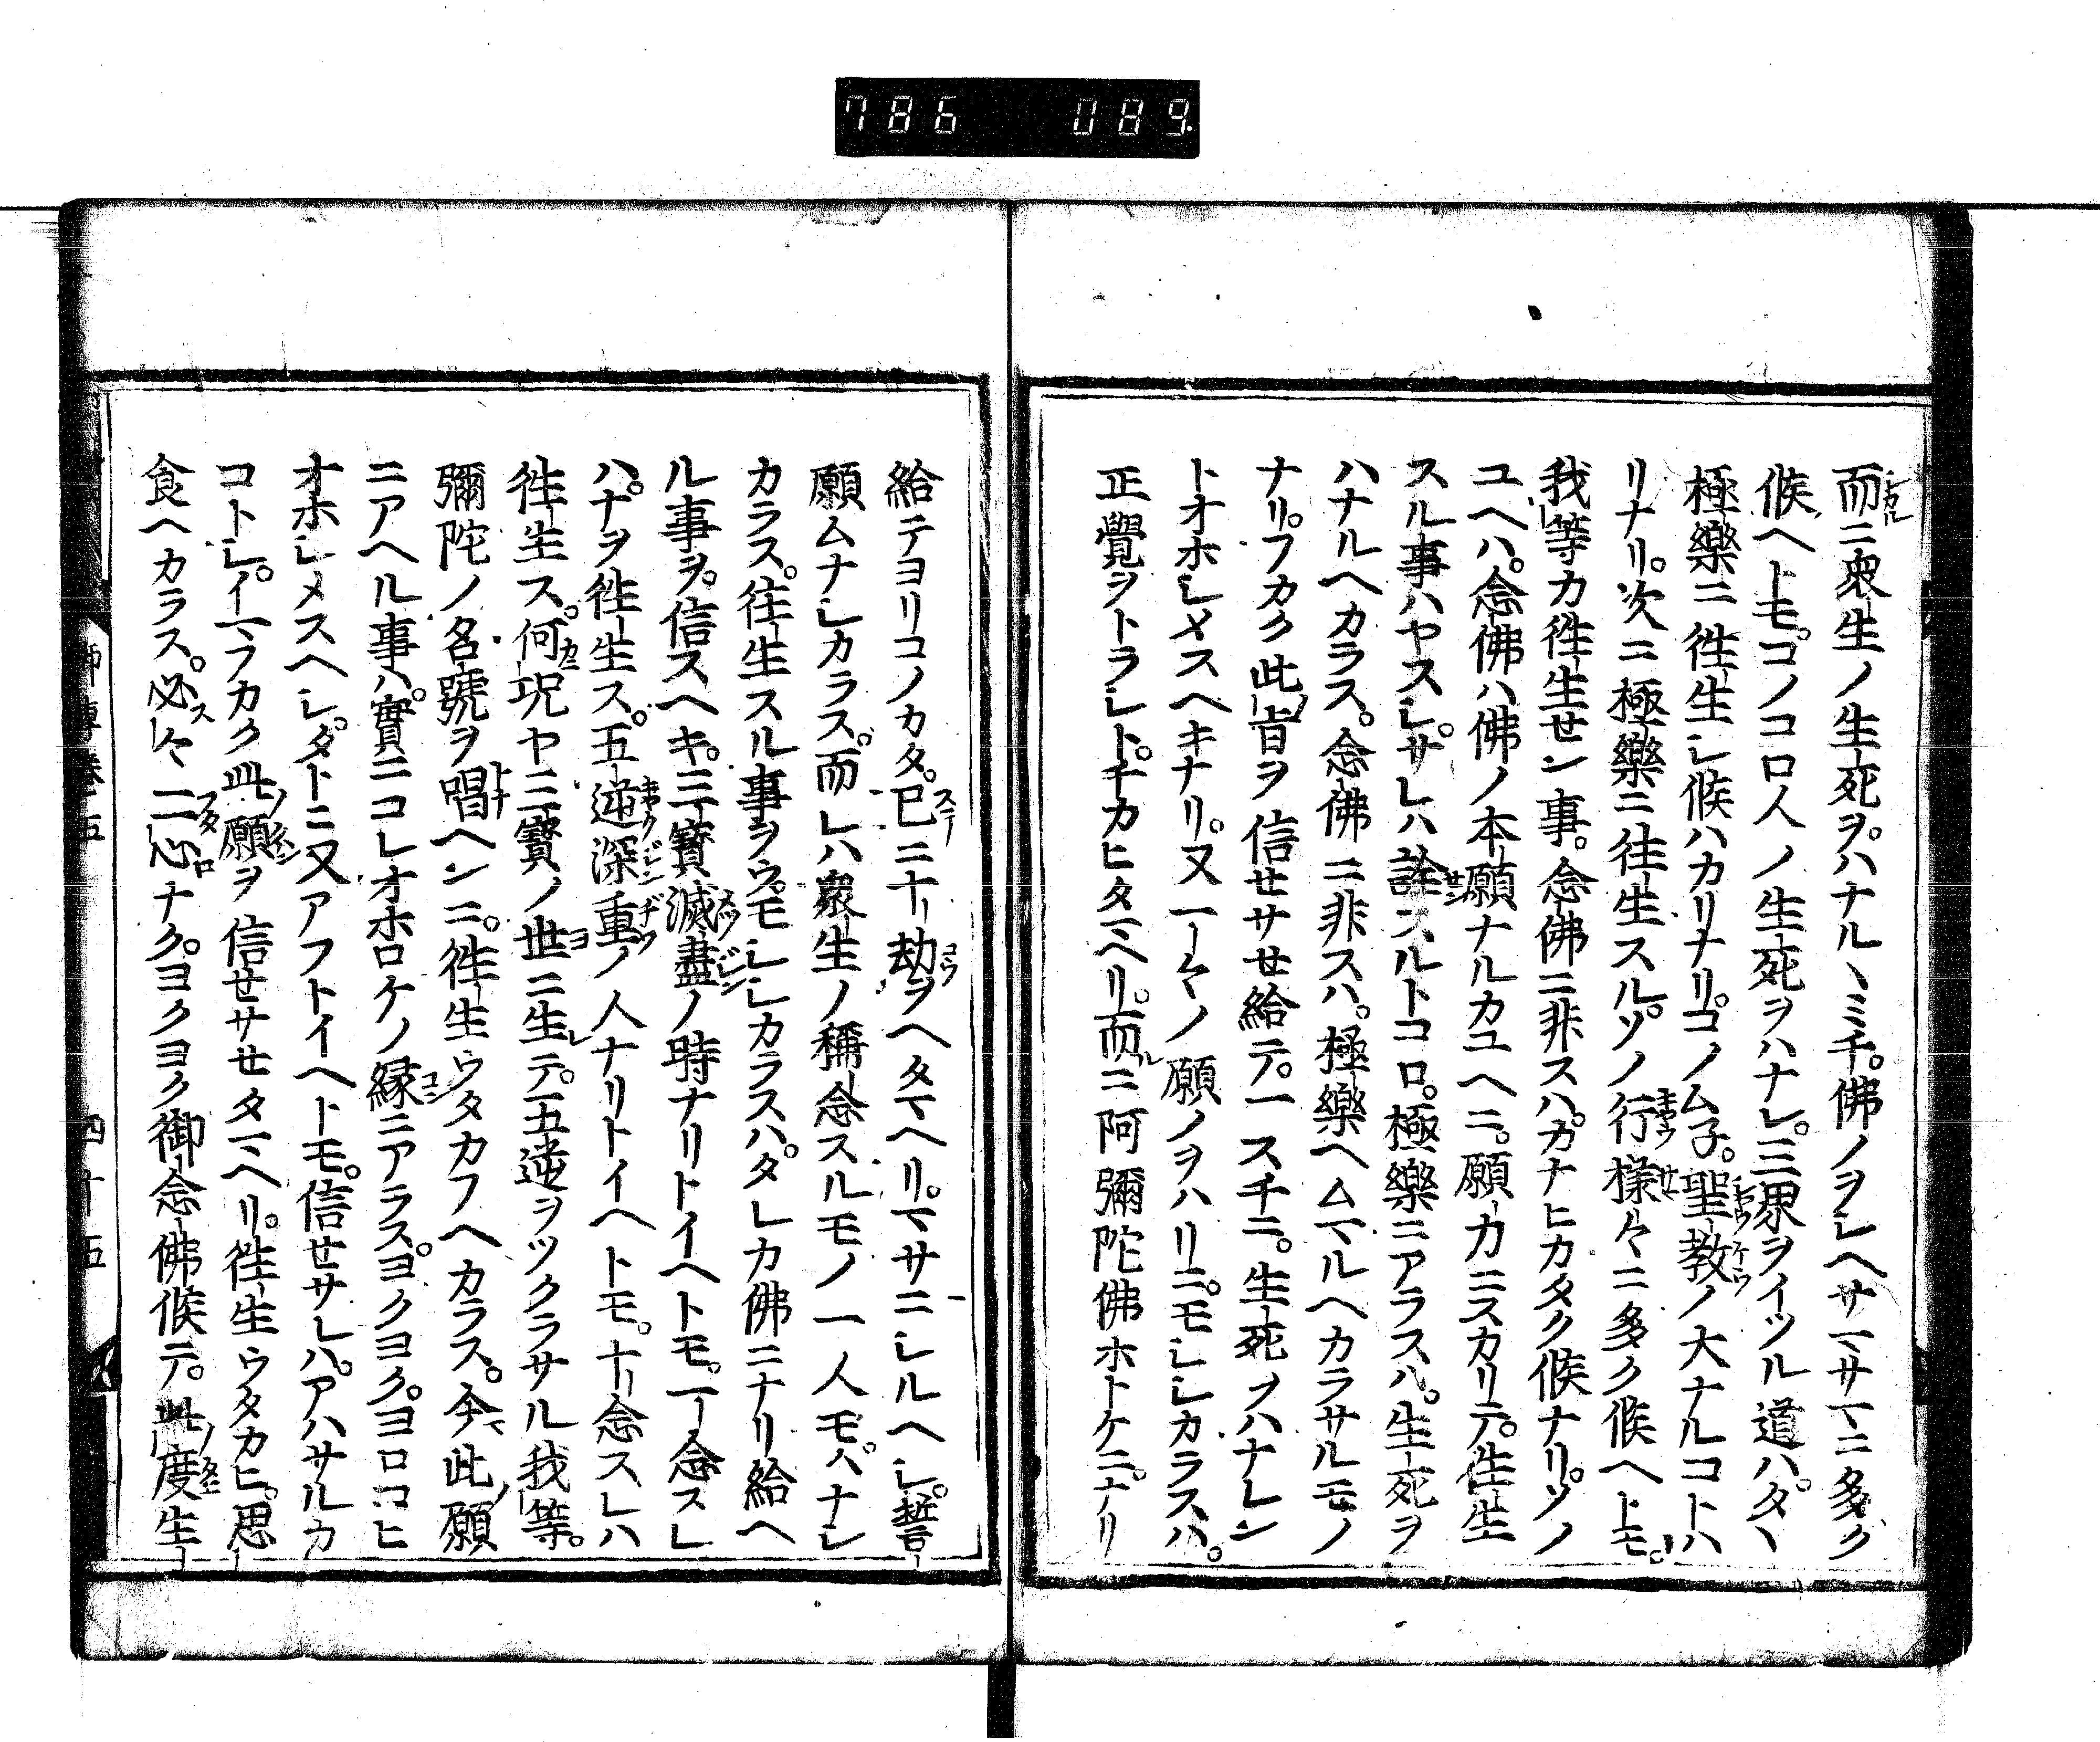 786 089
而ニ衆生ノ生死ヲハナルヽミチ。佛ノヲシヘサマサマニ多ク
候ヘトモ。コノコロ人ノ生死ヲハナレ。三界ヲイツル道ハ。タヽ
極樂ニ徃生シ候ハカリナリ。コノム子。聖教ノ大ナルコトハ
リナリ。次ニ極樂ニ往生スル。ソノ行樣々ニ多ク候ヘトモ。
我等カ徃生セン事。念佛ニ非スハ。カナヒカタク候ナリ。ソノ
ユヘハ。念佛ハ佛ノ本願ナルカユヘニ。願力ニスカリテ。往生
スル事ハヤスシ。サレハ詮スルトコロ。極樂ニアラスハ。生死ヲ
ハナルヘカラス。念佛ニ非スハ。極樂ヘムマルヘカラサルモノ
ナリ。フカク此旨ヲ信セサせ給テ。一スチニ。生死ヲハナレン
トオホシメスヘキナリ。又一々ノ願ノヲハリニ。モシシカラスハ。
正覺ヲトラシト。チカヒタマヘリ。而ニ阿彌陀佛ホトケニナリ
給テヨリコノカタ。已ニ十劫ヲヘタマヘリ。マサニシルヘシ。誓
願ムナシカラス。而レハ衆生ノ稱念スルモノ一人モ。ハナシ
カラス。往生スル事ヲウ。モシシカラスハ。タレカ佛ニナリ給ヘ
ル事ヲ。信スヘキ。三寶滅盡ノ時ナリトイヘトモ。一念スレ
ハ。ナヲ徃生ス。五逆深重ノ人ナリトイヘトモ。十念スレハ
徃生ス。何况ヤ三寶ノ世ニ生レテ。五逆ヲツクラサル我等。
彌陀ノ名號ヲ唱ヘンニ。徃生ウタカフヘカラス。今此願
ニアヘル事ハ。實ニコレオホロケノ縁ニアラス。ヨクヨク。ヨロコヒ
オホシメスヘシ。タトニ又アフトイヘトモ。信セサレハ。アハサルカ
コトシ。イマフカク此願ヲ信セサせタマヘリ。徃生ウタカヒ。思
食ヘカラス。必々二心ナク。ヨクヨク御念佛候テ。此度生
師傳卷五 四十五